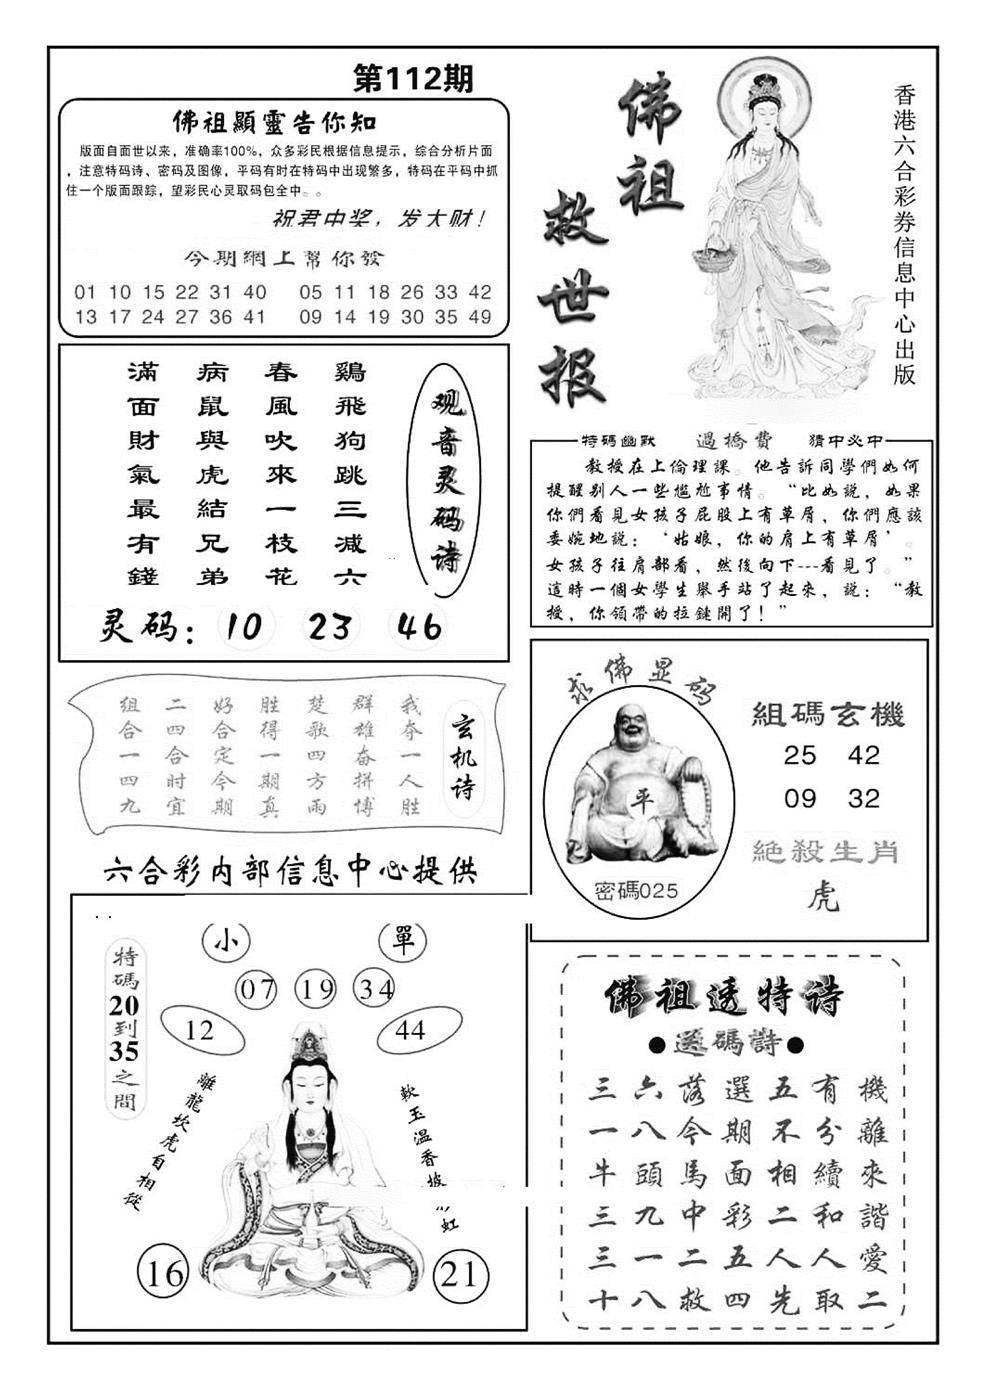 第112期
佛祖顯靈告你知
版面自面世以来，准确率100%，众多彩民根据信息提示，综合分析片面
，注意特码诗、密码及图像，平码有时在特码中出现繁多，特码在平码中抓
住一个版面跟踪，望彩民心灵取码包全中。。
祝君中奖，发大财！
今期網上幫你發
01 10 15 22 31 40 05 11 18 26 33 42
13 17 24 27 36 41 09 14 19 30 35 49
佛祖
救世报
香港六合彩券信息中心出版
观音灵码诗
鷄飛狗跳三减六
春風吹來一枝花
病鼠與虎結兄弟
滿面財氣最有錢
灵码：10 23 46
特碼幽默 過橋費 猜中必中
教授在上倫理課。他告訴同學們如何
提醒别人一些尴尬事情。“比如說，如果
你們看見女孩子屁股上有草屑，你們應該
委婉地説：‘姑娘，你的肩上有草屑’。
女孩子往肩部看，然後向下---看見了。”
這時一個女學生舉手站了起來，説：“教
授，你領帶的拉鏈開了！”
玄机诗
我夺一人胜
群雄奋拼博
楚歌四方雨
胜得一期真
好合定今期
二四合时宜
组合一四九
六合彩内部信息中心提供
求佛显码
平
密碼025
組碼玄機
25 42
09 32
絕殺生肖
虎
小 單
07 19 34
12 44
特碼20到35之間
離龍坎虎自相從
軟玉温香披彩虹
16 21
佛祖透特诗
●送碼詩●
三六落選五有機
一八今期不分離
牛頭馬面相續來
三九中彩二和諧
三一二五人人愛
十八救四先取二